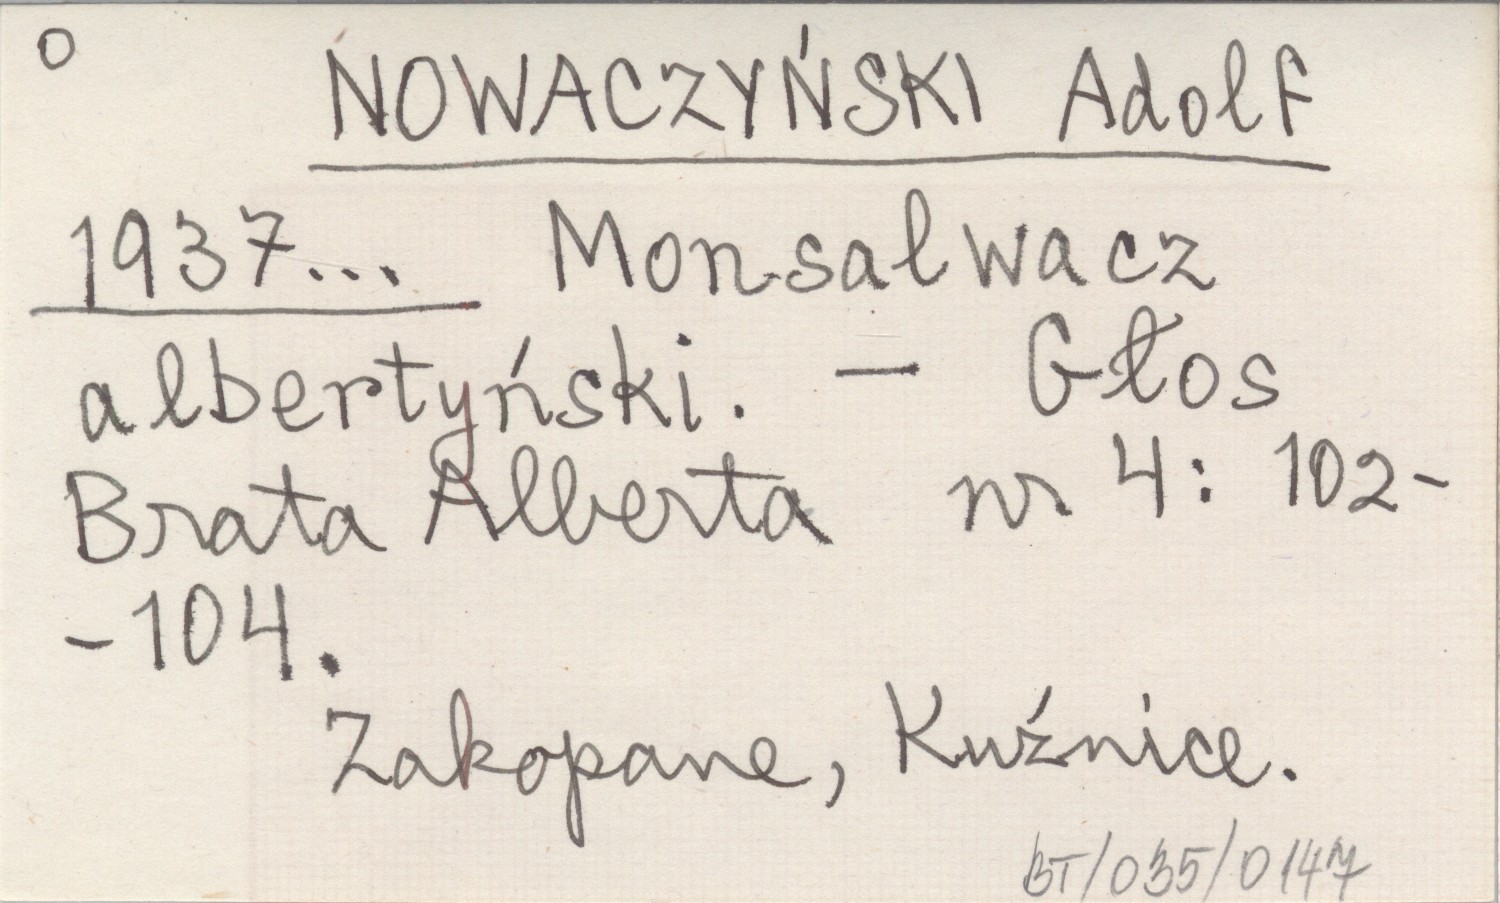 O
NOWACZYŃSKI Adolf
1937... Monsalwacz
albertyński. — Głos
Brata Alberta nr 4: 102-
-104.
Zakopane, Kuźnice.
BT/035/0147